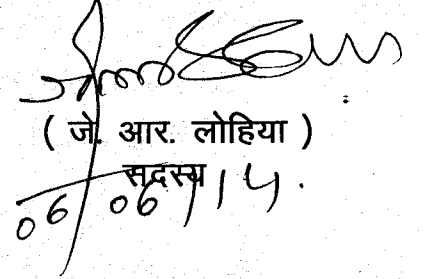 ( जे. आर. लोहिया )
सदस्य
06/06/14.